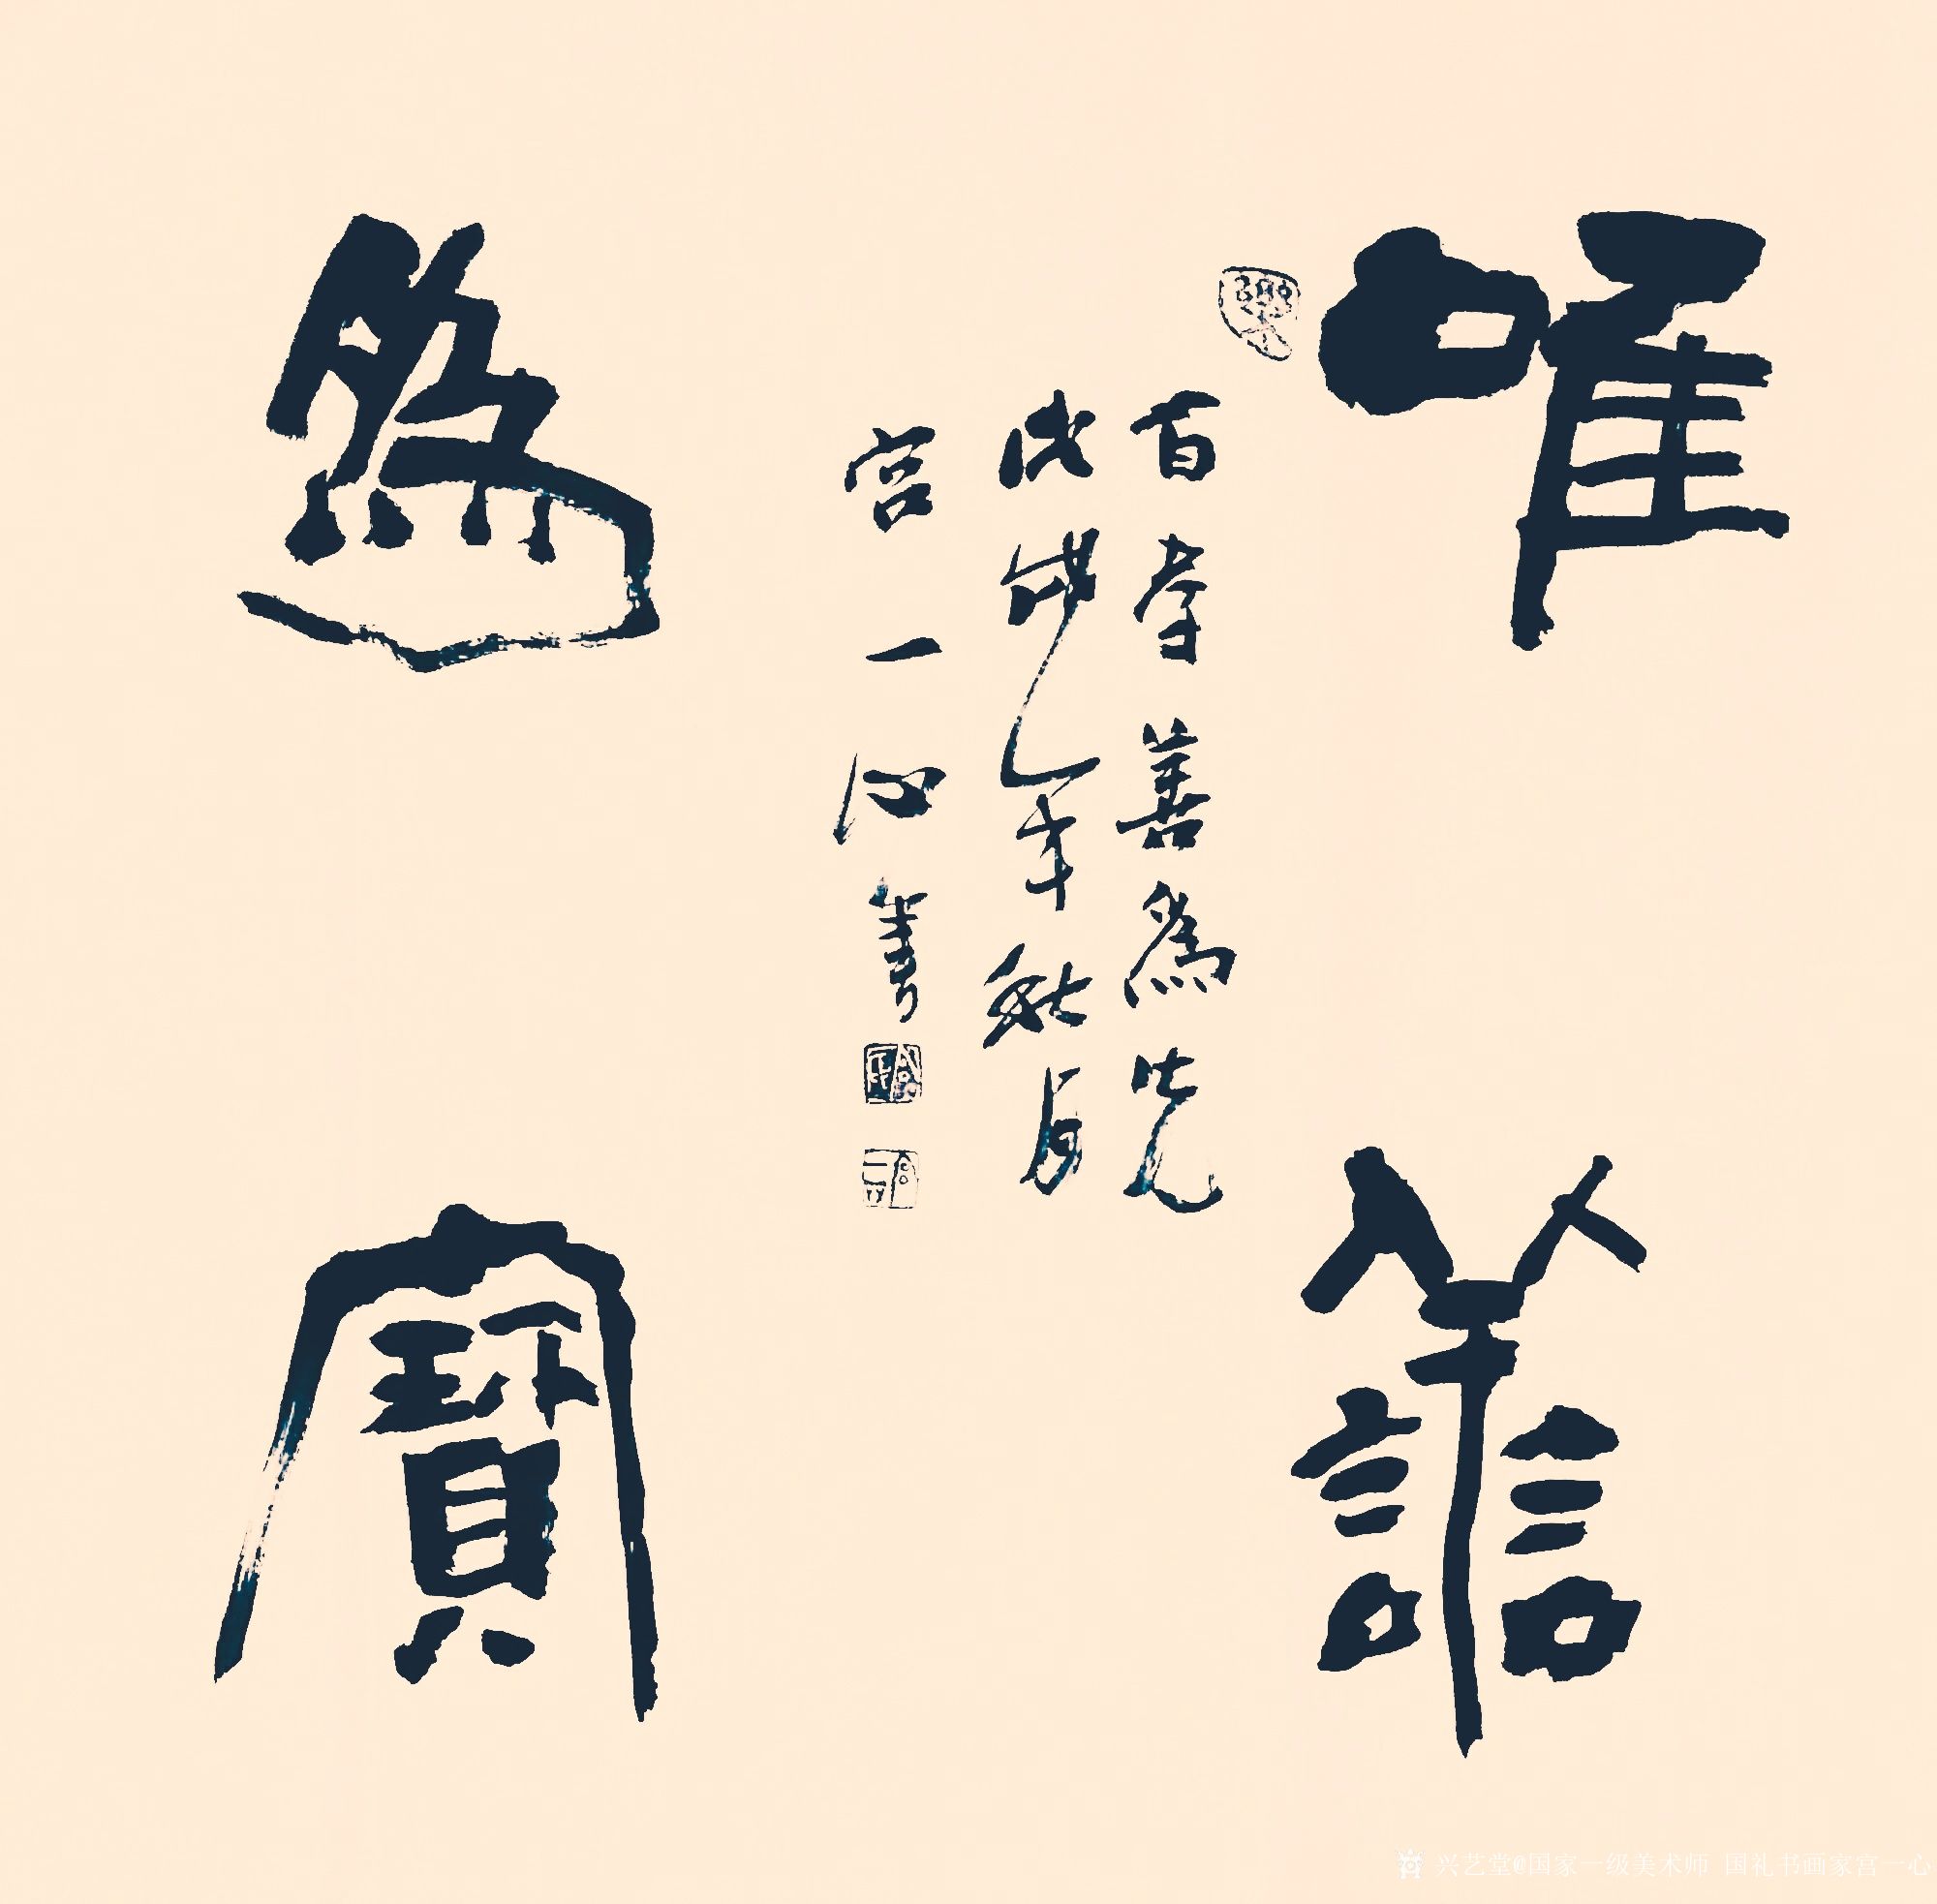 唯譱
百孝善為先
戊戌年秋月
宮一心書
為寶
兴艺堂@国家一级美术师 国礼书画家宫一心